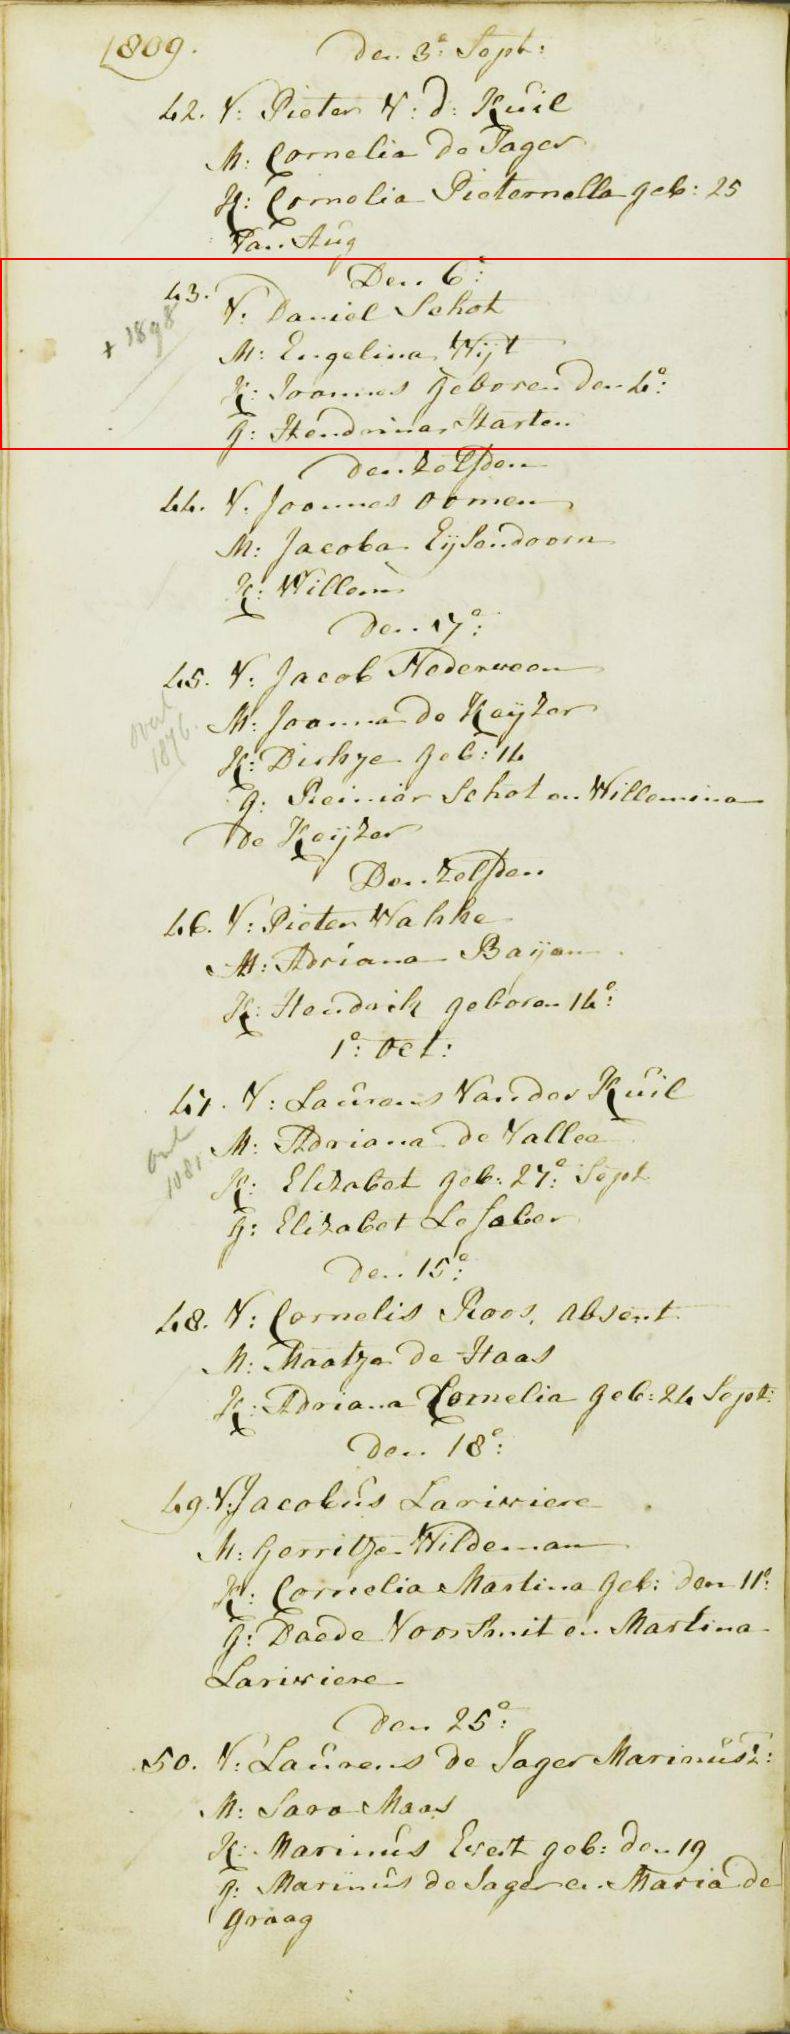 1809.
Den 3e: Sept:
42. V: Pieter V: d: Kuil
M: Cornelia de Jager
K: Cornelia Pieternella geb: 25
Van Aug
Den 6e:
43. V: Daniel Schot
+ 1898
M: Engelina Wijt
K: Joannes geboren den 4e:
G: Hendrina Harten
den zelfden
44. V: Joannes oomen
M: Jacoba Eijsendoorn
K: Willem
den 17e:
45. V: Jacob Nederveen
M: Joanna de Keijzer
overl 1876.
K: Dirkje geb: 14
G: Reinier Schot en Willemina
de Keijzer
Den zelfden
46. V: Pieter Wakke
M: Adriana Baijen
K: Hendrik geboren 14e:
1e: Oct:
47. V: Laurens Van der Kuil
M: Adriana de Vallee
K: Elizabet geb: 27e: Sept
G: Elizabet Lefaber
den 15e:
48. V: Cornelis Roos, absent
M: Maatje de Haas
K: Adriana Cornelia geb: 24 Sept:
den 18e:
49. V: Jacobus Lariviere
M: Gerritje Wildeman
K: Cornelia Martina geb: den 11e:
G: Daede Voorsmit en Martina
Lariviere
den 25e:
50. V: Laurens de Jager Marinusz:
M: Sara Maas
K: Marinus Evert geb: den 19
g: Marinus de Jager en Maria de
graag